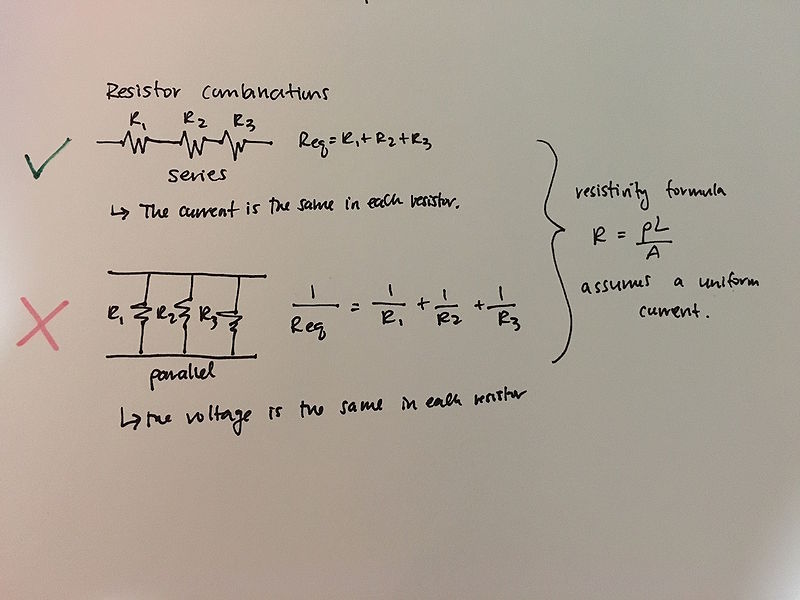 Resistor Combinations
R1 R2 R3
Req = R1 + R2 + R3
series
↳ The current is the same in each resistor.
R1 R2 R3
1/Req = 1/R1 + 1/R2 + 1/R3
parallel
↳ the voltage is the same in each resistor
resistivity formula
R = ρL/A
assumes a uniform
current.